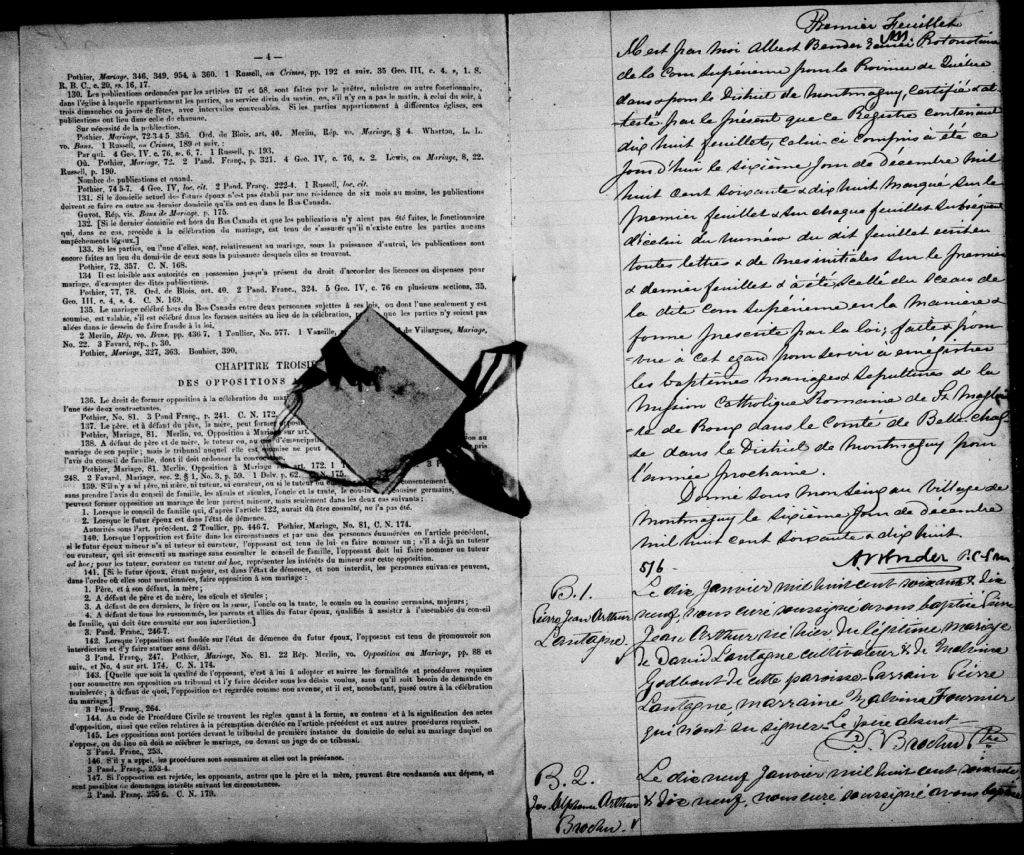 — 4 —
Pothier, Mariage, 346, 349, 954, à 360. 1 Russell, on Crimes, pp. 192 et suiv. 35 Geo. III, c. 4. s, 1. S.
R. B. C., c. 20, ss. 16, 17.
130. Les publications ordonnées par les articles 57 et 58, sont faites par le prêtre, ministre ou autre fonctionnaire,
dans l'église à laquelle appartiennent les parties, au service divin du matin, ou, s'il n'y en a pas le matin, à celui du soir, à
trois dimanches ou jours de fêtes, avec intervalles convenables. Si les parties appartiennent à différentes églises, ces
publications ont lieu dans celle de chacune.
Sur nécessité de la publication.
Pothier, Mariage, 72-3 4 5 356. Ord. de Blois, art. 40. Merlin, Rép. vo. Mariage, § 4. Wharton, L. L.
vo. Bans. 1 Russell, on Crimes, 189 et suiv :
Par qui. 4 Geo. IV, c. 76, ss. 6, 7. 1 Russell, p. 193.
Où. Pothier, Mariage, 72. 2 Pand. Franç., p. 321. 4 Geo. IV, c. 76, s. 2. Lewis, on Mariage, 8, 22.
Russell, p. 190.
Nombre de publications et quand.
Pothier, 74 5-7. 4 Geo. IV, loc. cit. 2 Pand. Franç. 222-4. 1 Russell, loc. cit.
131. Si le domicile actuel des futurs époux n'est pas établi par une résidence de six mois au moins, les publications
doivent se faire en outre au dernier domicile qu'ils ont eu dans le Bas-Canada.
Guyot, Rép. vis. Bans de Mariage, p. 175.
132. [Si le dernier domicile est hors du Bas Canada et que les publications n'y aient pas été faites, le fonctionnaire
qui, dans ce cas, procède à la célébration du mariage, est tenu de s'assurer qu'il n'existe entre les parties aucuns
empêchements légaux.]
133. Si les parties, ou l'une d'elles, sont, relativement au mariage, sous la puissance d'autrui, les publications sont
encore faites au lieu du domicile de ceux sous la puissance desquels elles se trouvent.
Pothier, 72, 357. C. N. 168.
134 Il est loisible aux autorités en possession jusqu'à présent du droit d'accorder des licences ou dispenses pour
mariage, d'exempter des dites publications.
Pothier, 77, 78. Ord. de Blois, art. 40. 2 Pand. Franç., 324. 5 Geo. IV, c. 76 en plusieurs sections, 35,
Geo. III, c. 4, s. 4. C. N. 169.
135. Le mariage célébré hors du Bas Canada entre deux personnes sujettes à ses lois, ou dont l'une seulement y est
soumise, est valable, s'il est célébré dans les formes usitées au lieu de la célébration, que les parties n'y soient pas
allées dans le dessein de faire fraude à la loi.
2 Merlin, Rép. vo. Bans, pp. 436 7. 1 Toullier, No. 577. 1 Vazeille, de Villargues, Mariage,
No. 22. 3 Favard, rép., p. 30.
Pothier, Mariage, 327, 363. Bouhier, 390.
CHAPITRE TROISI
DES OPPOSITIONS A
136. Le droit de former opposition à la célébration du mar
l'une des deux contractantes.
Pothier, No. 81. 3 Pand Franç., p. 241. C. N. 172.
137. Le père, et à défaut du père, la mère, peut former
Pothier, Mariage, 81. Merlin, vo. Opposition à Mariage sur art.
138. A défaut de père et de mère, le tuteur ou, au
mariage de son pupile; mais le tribunal auquel elle est
l'avis du conseil de famille, dont il doit ordonner la convo
Pothier, Mariage, 81. Merlin, Opposition à Mariage art. 172. 1
248. 2 Favard, Mariage, sec. 2, § 1, No. 3, p. 59. 1 Delv. p. 62.
139. S'il n'y a ni père, ni mère, ni tuteur, ni curateur, ou si le tuteur ou
sans prendre l'avis du conseil de famille, les aïeuls et aïeules, l'oncle et la tante, le cousin germains,
peuvent former opposition au mariage de leur parent mineur, mais seulement dans les deux cas suivants :
1. Lorsque le conseil de famille qui, d'après l'article 122, aurait dû être consulté, ne l'a pas été.
2. Lorsque le futur époux est dans l'état de démence.
Autorités sous l'art. précédent, 2 Toullier, pp. 446-7. Pothier, Mariage, No. 81, C. N. 174.
140. Lorsque l'opposition est faite dans les circonstances et par une des personnes énumérées en l'article précédent,
si le futur époux mineur n'a ni tuteur ni curateur, l'opposant est tenu de lui en faire nommer un; s'il a déjà un tuteur
ou curateur, qui ait consenti au mariage sans consulter le conseil de famille, l'opposant doit lui faire nommer un tuteur
ad hoc; pour les tuteur, curateur ou tuteur ad hoc, représenter les intérêts du mineur sur cette opposition.
141. [Si le futur époux, étant majeur, est dans l'état de démence, et non interdit, les personnes suivantes peuvent,
dans l'ordre où elles sont mentionnées, faire opposition à son mariage :
1. Père, et à son défaut, la mère;
2. A défaut de père et de mère, les aïeuls et aïeules;
3. A défaut de ces derniers, le frère ou la sœur, l'oncle ou la tante, le cousin ou la cousine germains, majeurs;
4. A défaut de tous les susnommés, les parents et alliés du futur époux, qualifiés à assister à l'assemblée du conseil
de famille, qui doit être consulté sur son interdiction.]
3. Pand. Franç., 246-7.
142. Lorsque l'opposition est fondée sur l'état de démence du futur époux, l'opposant est tenu de promouvoir son
interdiction et d'y faire statuer sans délai.
3 Pand. Franç., 247. Pothier, Mariage, No. 81. 22 Rép. Merlin, vo. Opposition au Mariage, pp. 88 et
suiv., et No. 4 sur art. 174. C. N. 174.
143. [Quelle que soit la qualité de l'opposant, c'est à lui à adopter et suivre les formalités et procédures requises
pour soumettre son opposition au tribunal et l'y faire décider sous les délais voulus, sans qu'il soit besoin de demande en
mainlevée; à défaut de quoi, l'opposition est regardée comme non avenue, et il est, nonobstant, passé outre à la célébration
du mariage.]
3 Pand. Franç., 264.
144. Au code de Procédure Civile se trouvent les règles quant à la forme, au contenu et à la signification des actes
d'opposition, ainsi que celles relatives à la péremption décrétée en l'article précédent et aux autres procédures requises.
145. Les oppositions sont portées devant le tribunal de première instance du domicile de celui au mariage duquel on
s'oppose, ou du lieu où doit se célébrer le mariage, ou devant un juge de ce tribunal.
3 Pand. Franç., 253.
146. S'il y a appel, les procédures sont sommaires et elles ont la préséance.
3 Pand. Franç., 253-4.
147. Si l'opposition est rejetée, les opposants, autres que le père et la mère, peuvent être condamnés aux dépens, et
sont passibles de dommages intérêts suivant les circonstances.
3 Pand. Franç. 255 6. C. N. 179.
Premier Feuillet
par moi Albert Bender Protonotaire
de la Cour Supérieure pour la Province de Québec
dans & pour le District de Montmagny, certifié & at-
testé par le présent que ce Régistre contenant
dix huit feuillets, celui-ci compris a été ce
Jourd'hui le sixième Jour de décembre mil
huit cent soixante & dix huit marqué sur le
premier feuillet & sur chaque feuillet subsequent
d'icelui du numéro du dit feuillet écrit en
toutes lettres & de mes initiales sur le premier
& dernier feuillet & a été scellé du Sceau de
la dite Cour Supérieure en la manière &
forme prescrite par la loi,
vue à cet égard pour servir à enrégistrer
les baptêmes mariages & sépultures de la
Mission Catholique Romaine de St Magloi-
re de Roux dans le Comté de Bellechas-
se dans le District de Montmagny pour
l'année prochaine.
Donné sous mon seing au Village de
Montmagny le sixième Jour de décembre
mil huit cent soixante & dix huit.
516 A Bender P.C.S.
B. 1.
Pierre Jean Arthur
Lantagne.
Le dix Janvier mil huit cent soixante & dix
neuf, nous curé soussigné avons baptisé Pierre
Jean Arthur né hier, du légitime mariage
de David Lantagne cultivateur & de Malvina
Godbout de cette paroisse. Parrain Pierre
Lantagne, marraine Malvina Fournier
qui n'ont su signer. Le père absent.
Brochu Ptre
B. 2.
Jos Alphonse Arthur
Brochu.
Le dix neuf Janvier mil huit cent soixante
& dix neuf, nous curé soussigné avons baptisé